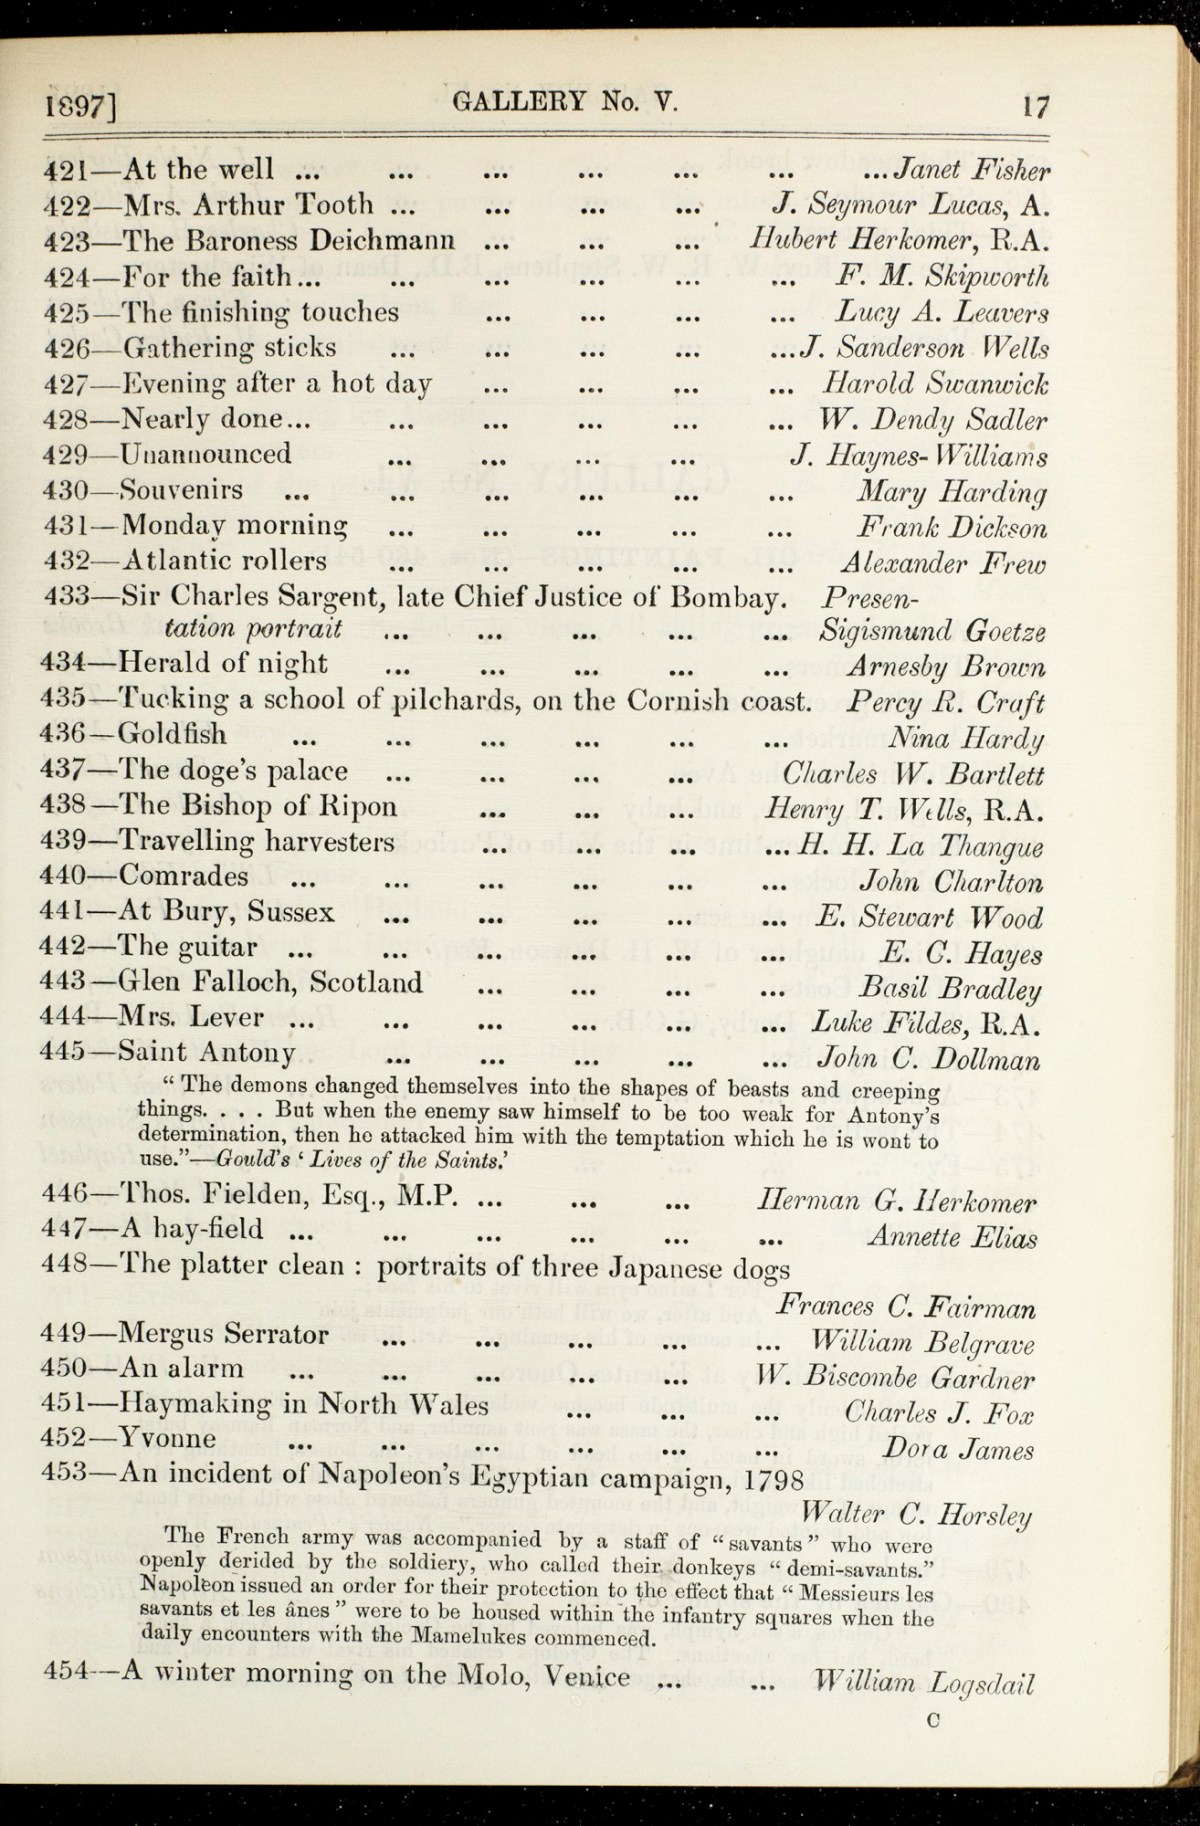 1897] GALLERY No. V. 17
421—At the well ... ... ... ... ... ... ...Janet Fisher
422—Mrs. Arthur Tooth ... ... ... ... J. Seymour Lucas, A.
423—The Baroness Deichmann ... ... ... Hubert Herkomer, R.A.
424—For the faith... ... ... ... ... ... F. M. Skipworth
425—The finishing touches ... ... ... ... Lucy A. Leavers
426—Gathering sticks ... ... ... ... ...J. Sanderson Wells
427—Evening after a hot day ... ... ... ... Harold Swanwick
428—Nearly done... ... ... ... ... ... W. Dendy Sadler
429—Unannounced ... ... ... ... J. Haynes-Williams
430—Souvenirs ... ... ... ... ... ... Mary Harding
431—Monday morning ... ... ... ... ... Frank Dickson
432—Atlantic rollers ... ... ... ... ... Alexander Frew
433—Sir Charles Sargent, late Chief Justice of Bombay. Presen-
tation portrait ... ... ... ... ... Sigismund Goetze
434—Herald of night ... ... ... ... ... Arnesby Brown
435—Tucking a school of pilchards, on the Cornish coast. Percy R. Craft
436—Goldfish ... ... ... ... ... ... Nina Hardy
437—The doge's palace ... ... ... ... Charles W. Bartlett
438—The Bishop of Ripon ... ... ... Henry T. Wells, R.A.
439—Travelling harvesters ... ... ... ... H. H. La Thangue
440—Comrades ... ... ... ... ... ... John Charlton
441—At Bury, Sussex ... ... ... ... ... E. Stewart Wood
442—The guitar ... ... ... ... ... ... E. C. Hayes
443—Glen Falloch, Scotland ... ... ... ... Basil Bradley
444—Mrs. Lever ... ... ... ... ... ... Luke Fildes, R.A.
445—Saint Antony ... ... ... ... ... John C. Dollman
"The demons changed themselves into the shapes of beasts and creeping
things. . . . But when the enemy saw himself to be too weak for Antony's
determination, then he attacked him with the temptation which he is wont to
use."—Gould's 'Lives of the Saints.'
446—Thos. Fielden, Esq., M.P. ... ... ... Herman G. Herkomer
447—A hay-field ... ... ... ... ... ... Annette Elias
448—The platter clean : portraits of three Japanese dogs
Frances C. Fairman
449—Mergus Serrator ... ... ... ... ... William Belgrave
450—An alarm ... ... ... ... ... W. Biscombe Gardner
451—Haymaking in North Wales ... ... ... Charles J. Fox
452—Yvonne ... ... ... ... ... ... Dora James
453—An incident of Napoleon's Egyptian campaign, 1798
Walter C. Horsley
The French army was accompanied by a staff of "savants" who were
openly derided by the soldiery, who called their donkeys "demi-savants."
Napoleon issued an order for their protection to the effect that "Messieurs les
savants et les ânes" were to be housed within the infantry squares when the
daily encounters with the Mamelukes commenced.
454—A winter morning on the Molo, Venice ... ... William Logsdail
C